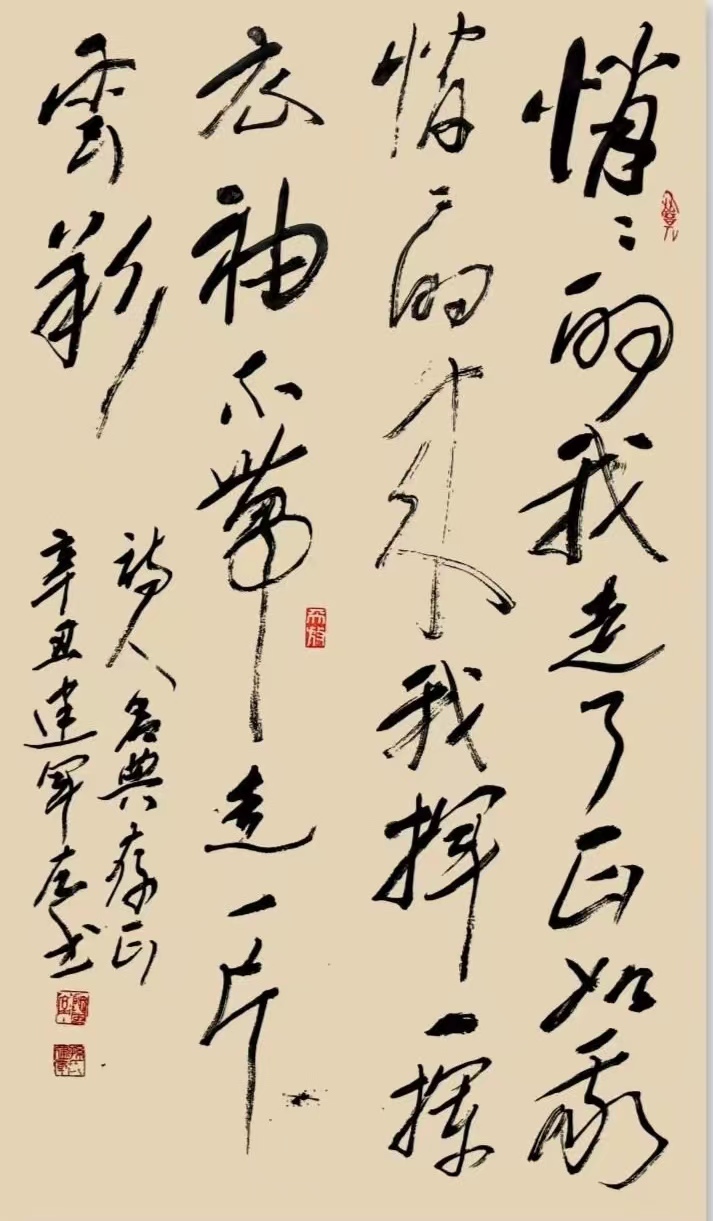 悄〻的我走了正如我
悄〻的来我挥一挥
衣袖不帶走一片
雲彩
诗人名典存正
辛丑建军左书